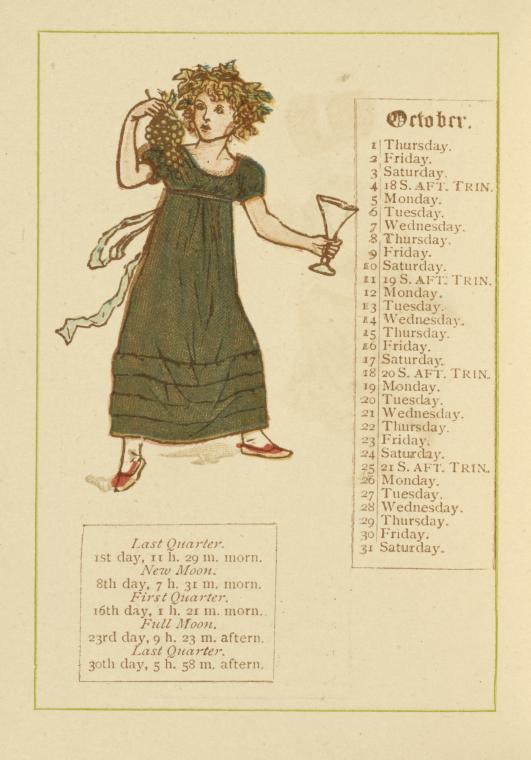 October.
1 Thursday.
2 Friday.
3 Saturday.
4 18 S. AFT. TRIN.
5 Monday.
6 Tuesday.
7 Wednesday.
8 Thursday.
9 Friday.
10 Saturday.
11 19 S. AFT. TRIN.
12 Monday.
13 Tuesday.
14 Wednesday.
15 Thursday.
16 Friday.
17 Saturday.
18 20 S. AFT. TRIN.
19 Monday.
20 Tuesday.
21 Wednesday.
22 Thursday.
23 Friday.
24 Saturday.
25 21 S. AFT. TRIN.
26 Monday.
27 Tuesday.
28 Wednesday.
29 Thursday.
30 Friday.
31 Saturday.
Last Quarter.
1st day, 11 h. 29 m. morn.
New Moon.
8th day, 7 h. 31 m. morn.
First Quarter.
16th day, 1 h. 21 m. morn.
Full Moon.
23rd day, 9 h. 23 m. aftern.
Last Quarter.
30th day, 5 h. 58 m. aftern.